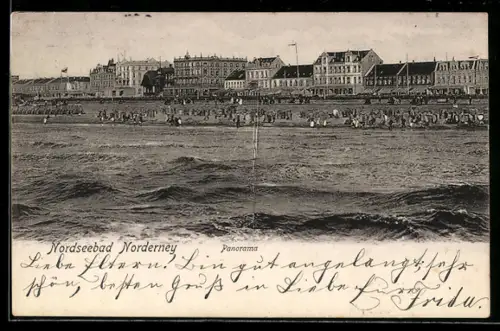 Nordseebad Norderney Panorama
Liebe Eltern! Bin gut angelangt, sehr
schön, besten Gruß in Liebe Eure Frida.